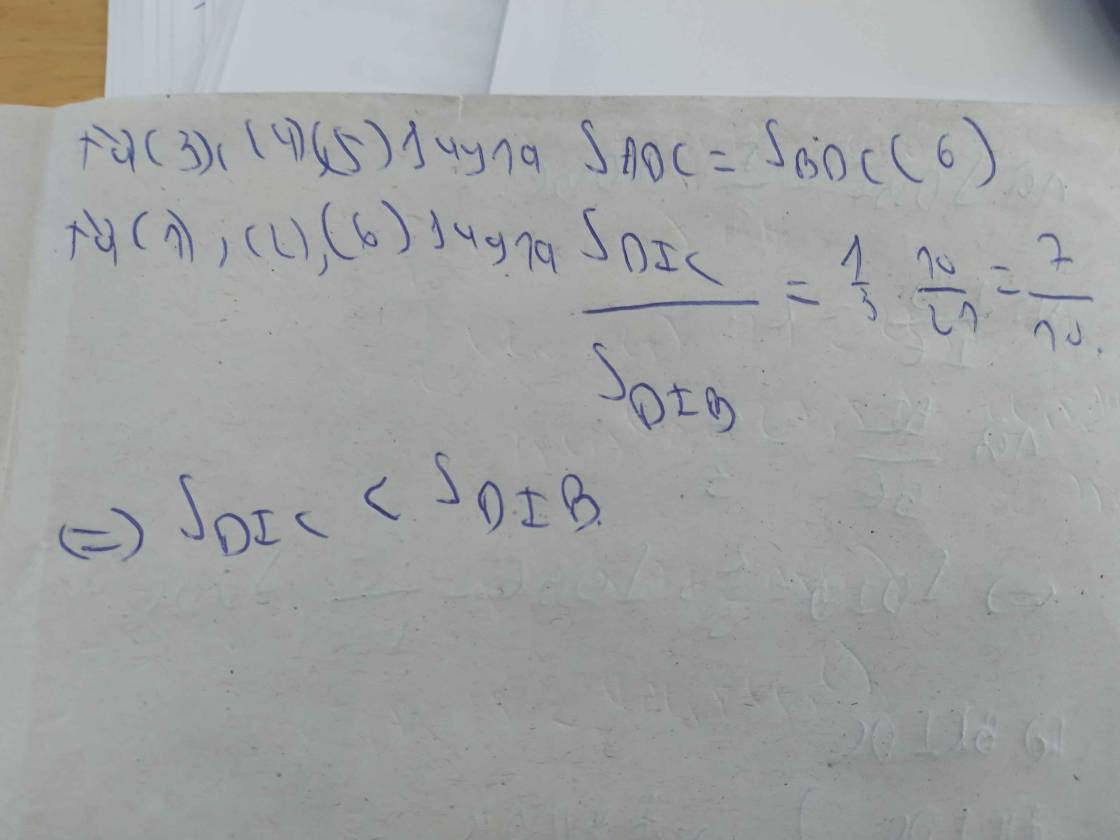 từ (3), (4)(5) suy ra S ADC = S BDC (6)
từ (1), (2), (6) suy ra S DIC / S DIB = 1/3 10/21 = 7/10.
(=) S DIC < S DIB